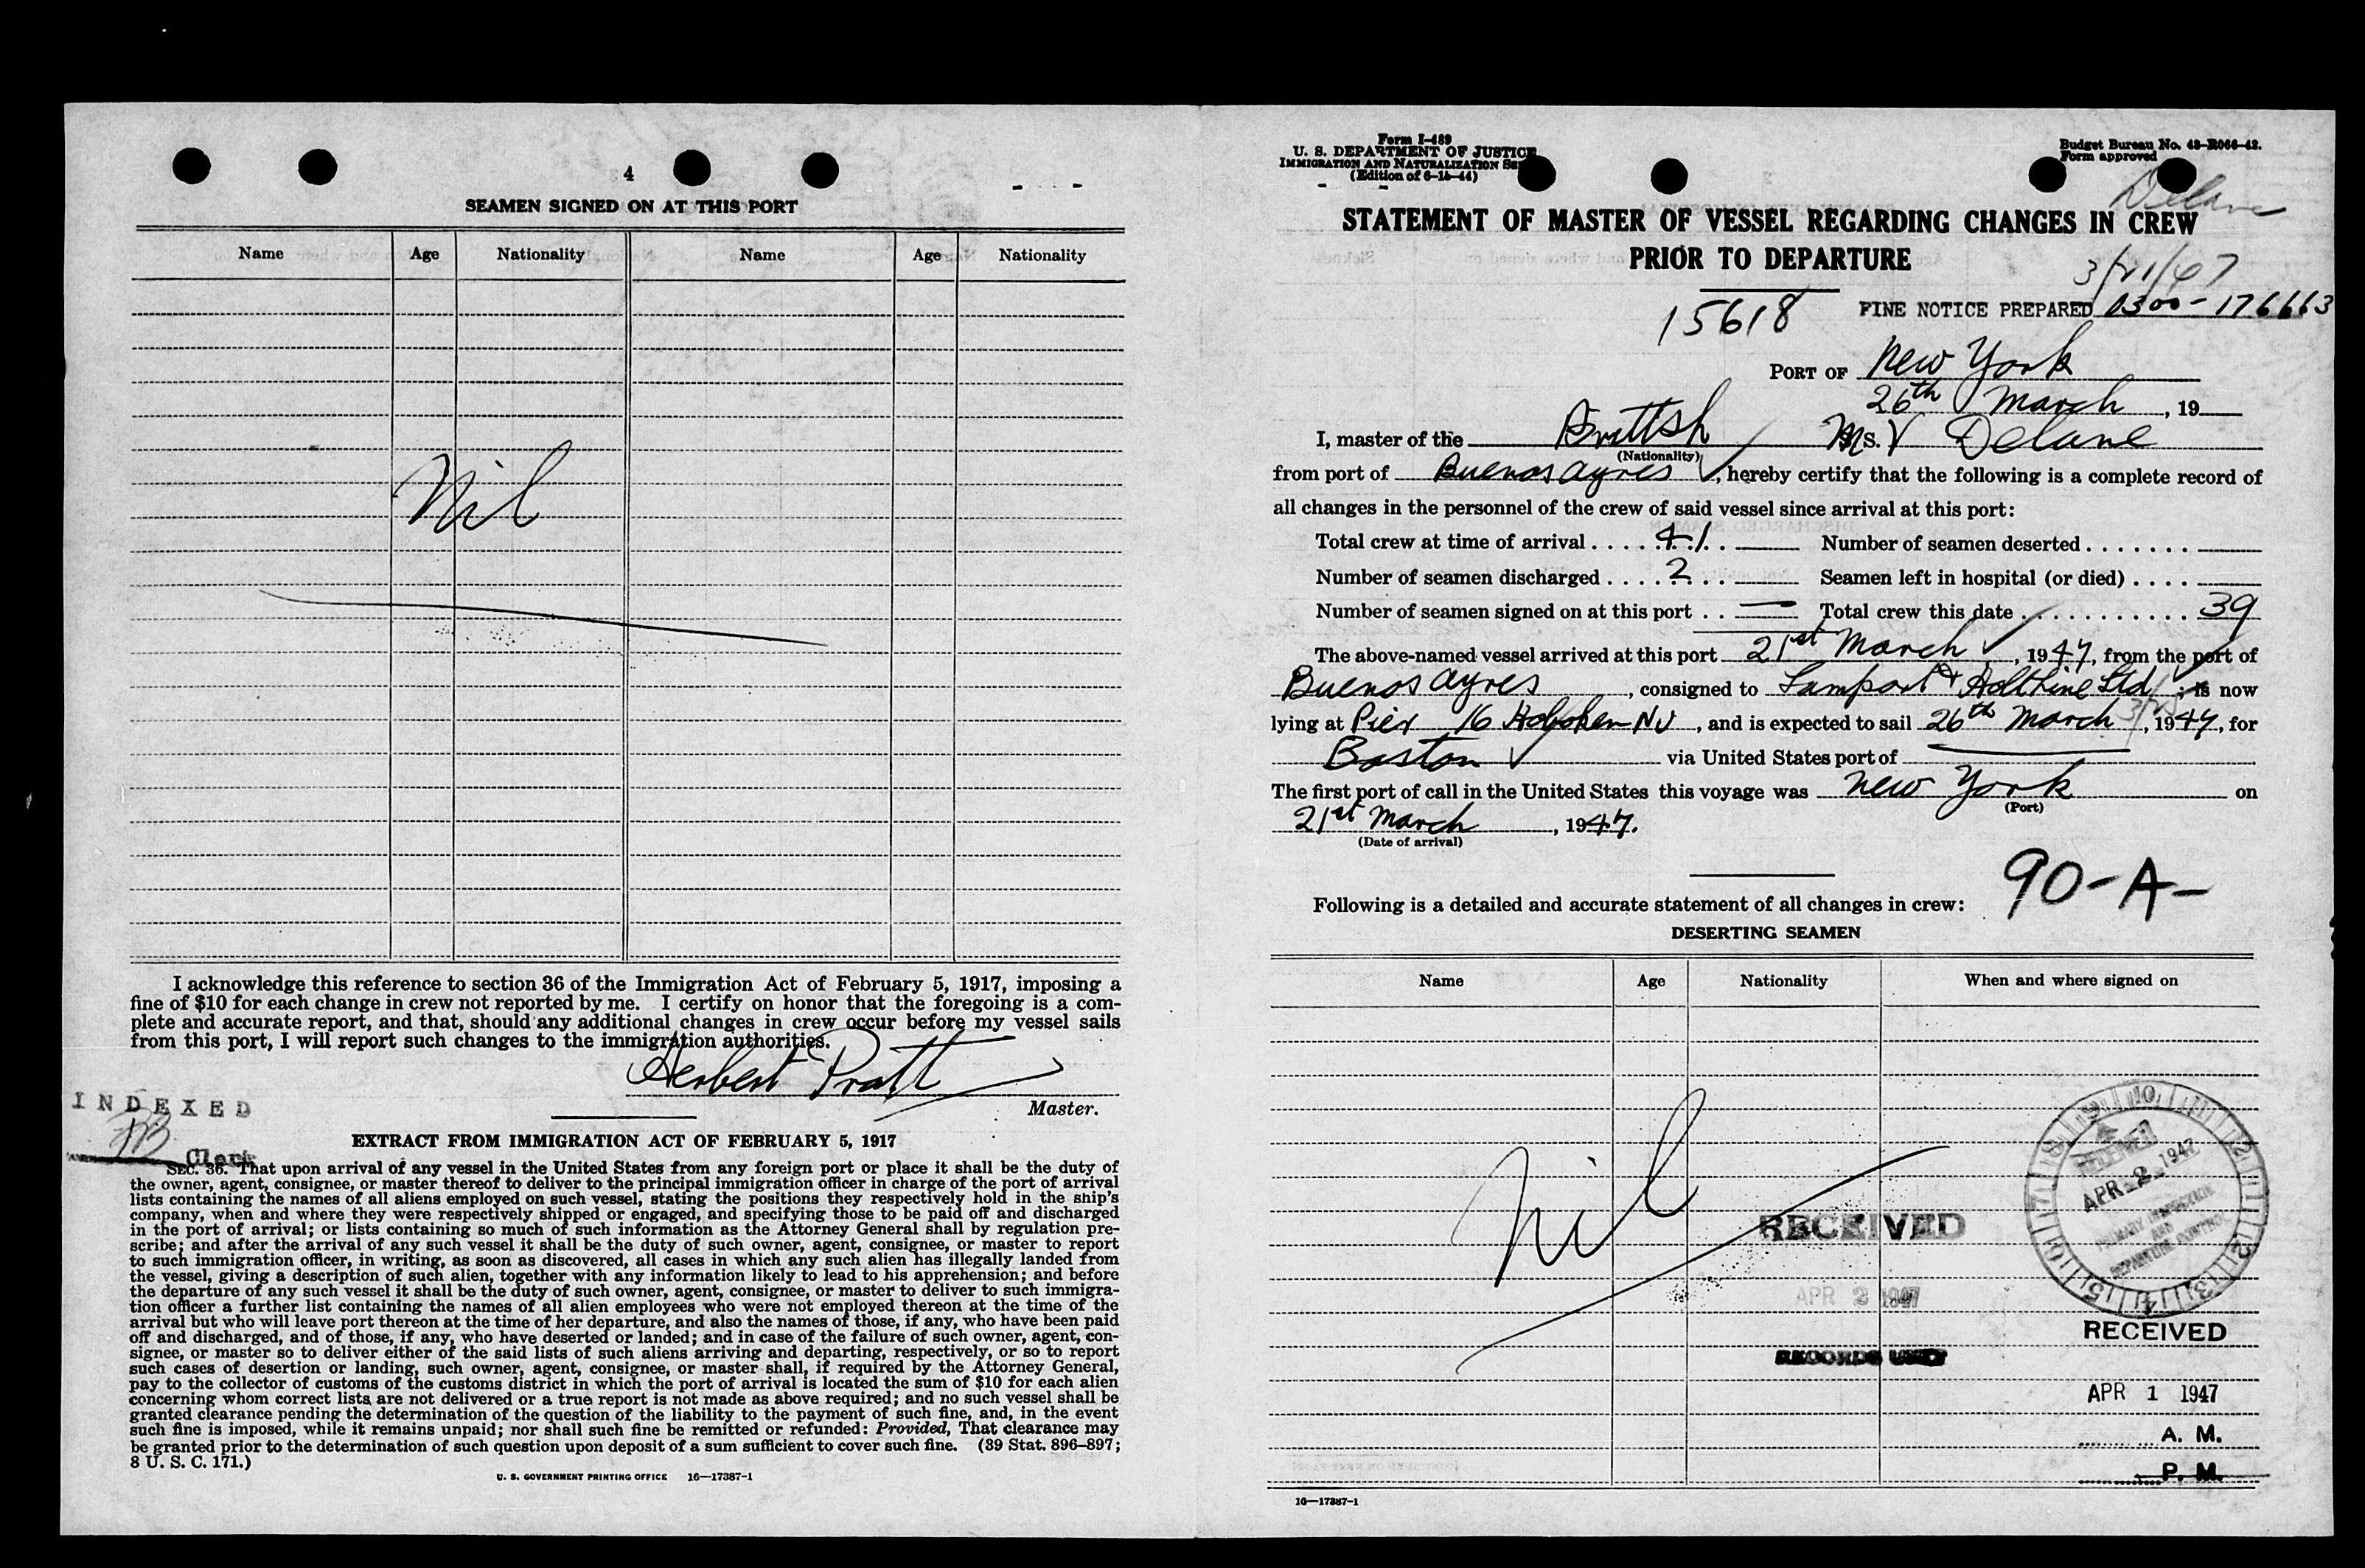 4
SEAMEN SIGNED ON AT THIS PORT
Name Age Nationality Name Age Nationality
Nil
I acknowledge this reference to section 36 of the Immigration Act of February 5, 1917, imposing a
fine of $10 for each change in crew not reported by me. I certify on honor that the foregoing is a com-
plete and accurate report, and that, should any additional changes in crew occur before my vessel sails
from this port, I will report such changes to the immigration authorities.
Herbert Pratt
Master.
INDEXED
Clerk
EXTRACT FROM IMMIGRATION ACT OF FEBRUARY 5, 1917
SEC. 36. That upon arrival of any vessel in the United States from any foreign port or place it shall be the duty of
the owner, agent, consignee, or master thereof to deliver to the principal immigration officer in charge of the port of arrival
lists containing the names of all aliens employed on such vessel, stating the positions they respectively hold in the ship's
company, when and where they were respectively shipped or engaged, and specifying those to be paid off and discharged
in the port of arrival; or lists containing so much of such information as the Attorney General shall by regulation pre-
scribe; and after the arrival of any such vessel it shall be the duty of such owner, agent, consignee, or master to report
to such immigration officer, in writing, as soon as discovered, all cases in which any such alien has illegally landed from
the vessel, giving a description of such alien, together with any information likely to lead to his apprehension; and before
the departure of any such vessel it shall be the duty of such owner, agent, consignee, or master to deliver to such immigra-
tion officer a further list containing the names of all alien employees who were not employed thereon at the time of the
arrival but who will leave port thereon at the time of her departure, and also the names of those, if any, who have been paid
off and discharged, and of those, if any, who have deserted or landed; and in case of the failure of such owner, agent, con-
signee, or master so to deliver either of the said lists of such aliens arriving and departing, respectively, or so to report
such cases of desertion or landing, such owner, agent, consignee, or master shall, if required by the Attorney General,
pay to the collector of customs of the customs district in which the port of arrival is located the sum of $10 for each alien
concerning whom correct lists are not delivered or a true report is not made as above required; and no such vessel shall be
granted clearance pending the determination of the question of the liability to the payment of such fine, and, in the event
such fine is imposed, while it remains unpaid; nor shall such fine be remitted or refunded: Provided, That clearance may
be granted prior to the determination of such question upon deposit of a sum sufficient to cover such fine. (39 Stat. 896–897;
8 U. S. C. 171.)
U. S. GOVERNMENT PRINTING OFFICE 16—17387-1
Form I-489
U. S. DEPARTMENT OF JUSTICE
IMMIGRATION AND NATURALIZATION SE
(Edition of 6-15-44)
Budget Bureau No. 43-R066-42.
Form approved
Delane
STATEMENT OF MASTER OF VESSEL REGARDING CHANGES IN CREW
PRIOR TO DEPARTURE
3/21/47
15618 FINE NOTICE PREPARED 0300-176663
PORT OF New York
26th March, 19
I, master of the British Ms.V Delane
(Nationality)
from port of Buenos Ayres, hereby certify that the following is a complete record of
all changes in the personnel of the crew of said vessel since arrival at this port:
Total crew at time of arrival .... 41 Number of seamen deserted .......
Number of seamen discharged .... 2 Seamen left in hospital (or died) ....
Number of seamen signed on at this port .. — Total crew this date ........... 39
The above-named vessel arrived at this port 21st March, 1947, from the port of
Buenos Ayres, consigned to Lamport & Holt Line Ltd; is now
lying at Pier 16 Hoboken NJ, and is expected to sail 26th March, 1947, for
Boston via United States port of
The first port of call in the United States this voyage was New York on
(Port)
21st March, 1947.
(Date of arrival)
90-A-
Following is a detailed and accurate statement of all changes in crew:
DESERTING SEAMEN
Name Age Nationality When and where signed on
Nil
RECEIVED
APR 2 1947
RECORDS UNIT
RECEIVED
APR 2 1947
PRIMARY INSPECTION
AND
DEPARTURE CONTROL
RECEIVED
APR 1 1947
A. M.
P. M.
16—17387-1